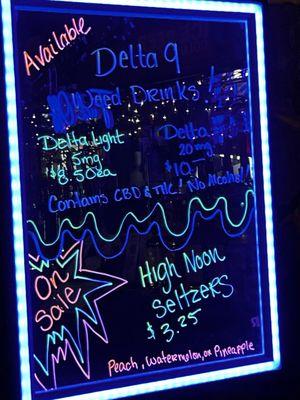 Available
Delta 9
Weed Drinks!
Delta Light
5mg
$8.50ea
Delta
20mg
$10.
Contains CBD & THC! No Alcohol!
On
Sale
High Noon
Seltzers
$3.25
Peach, Watermelon, or Pineapple